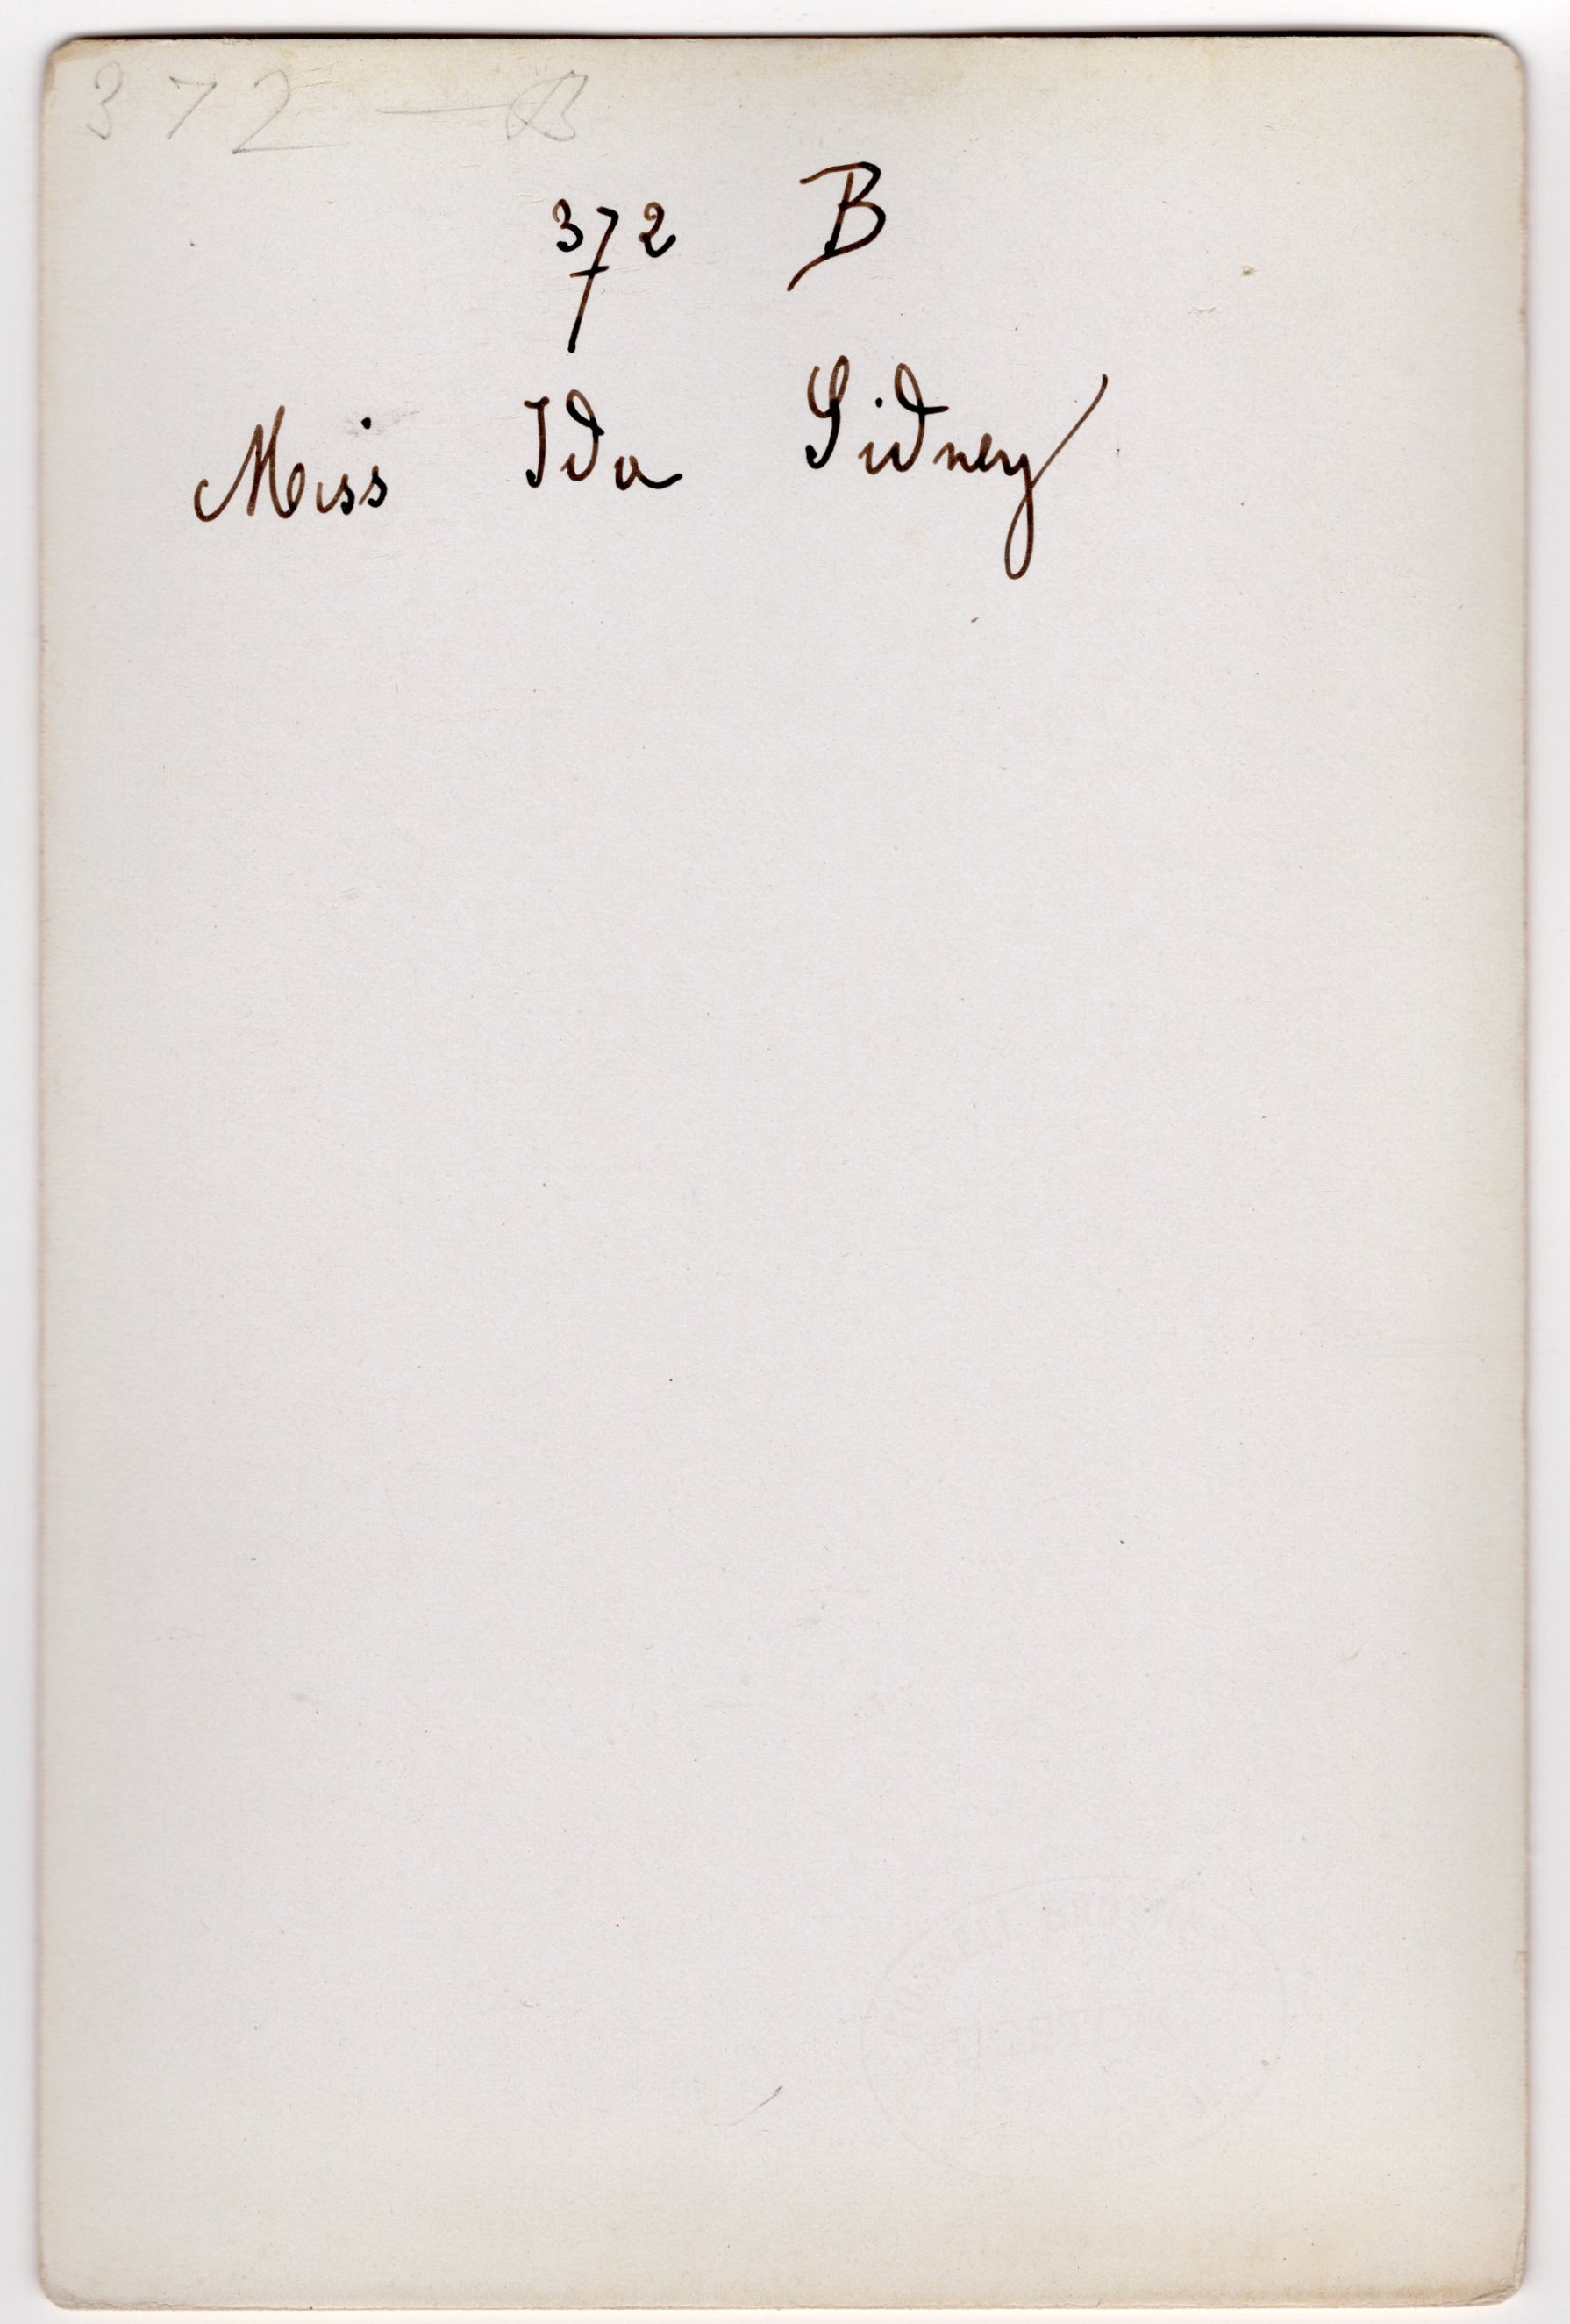 372 — B
372 B
Miss Ida Sidney